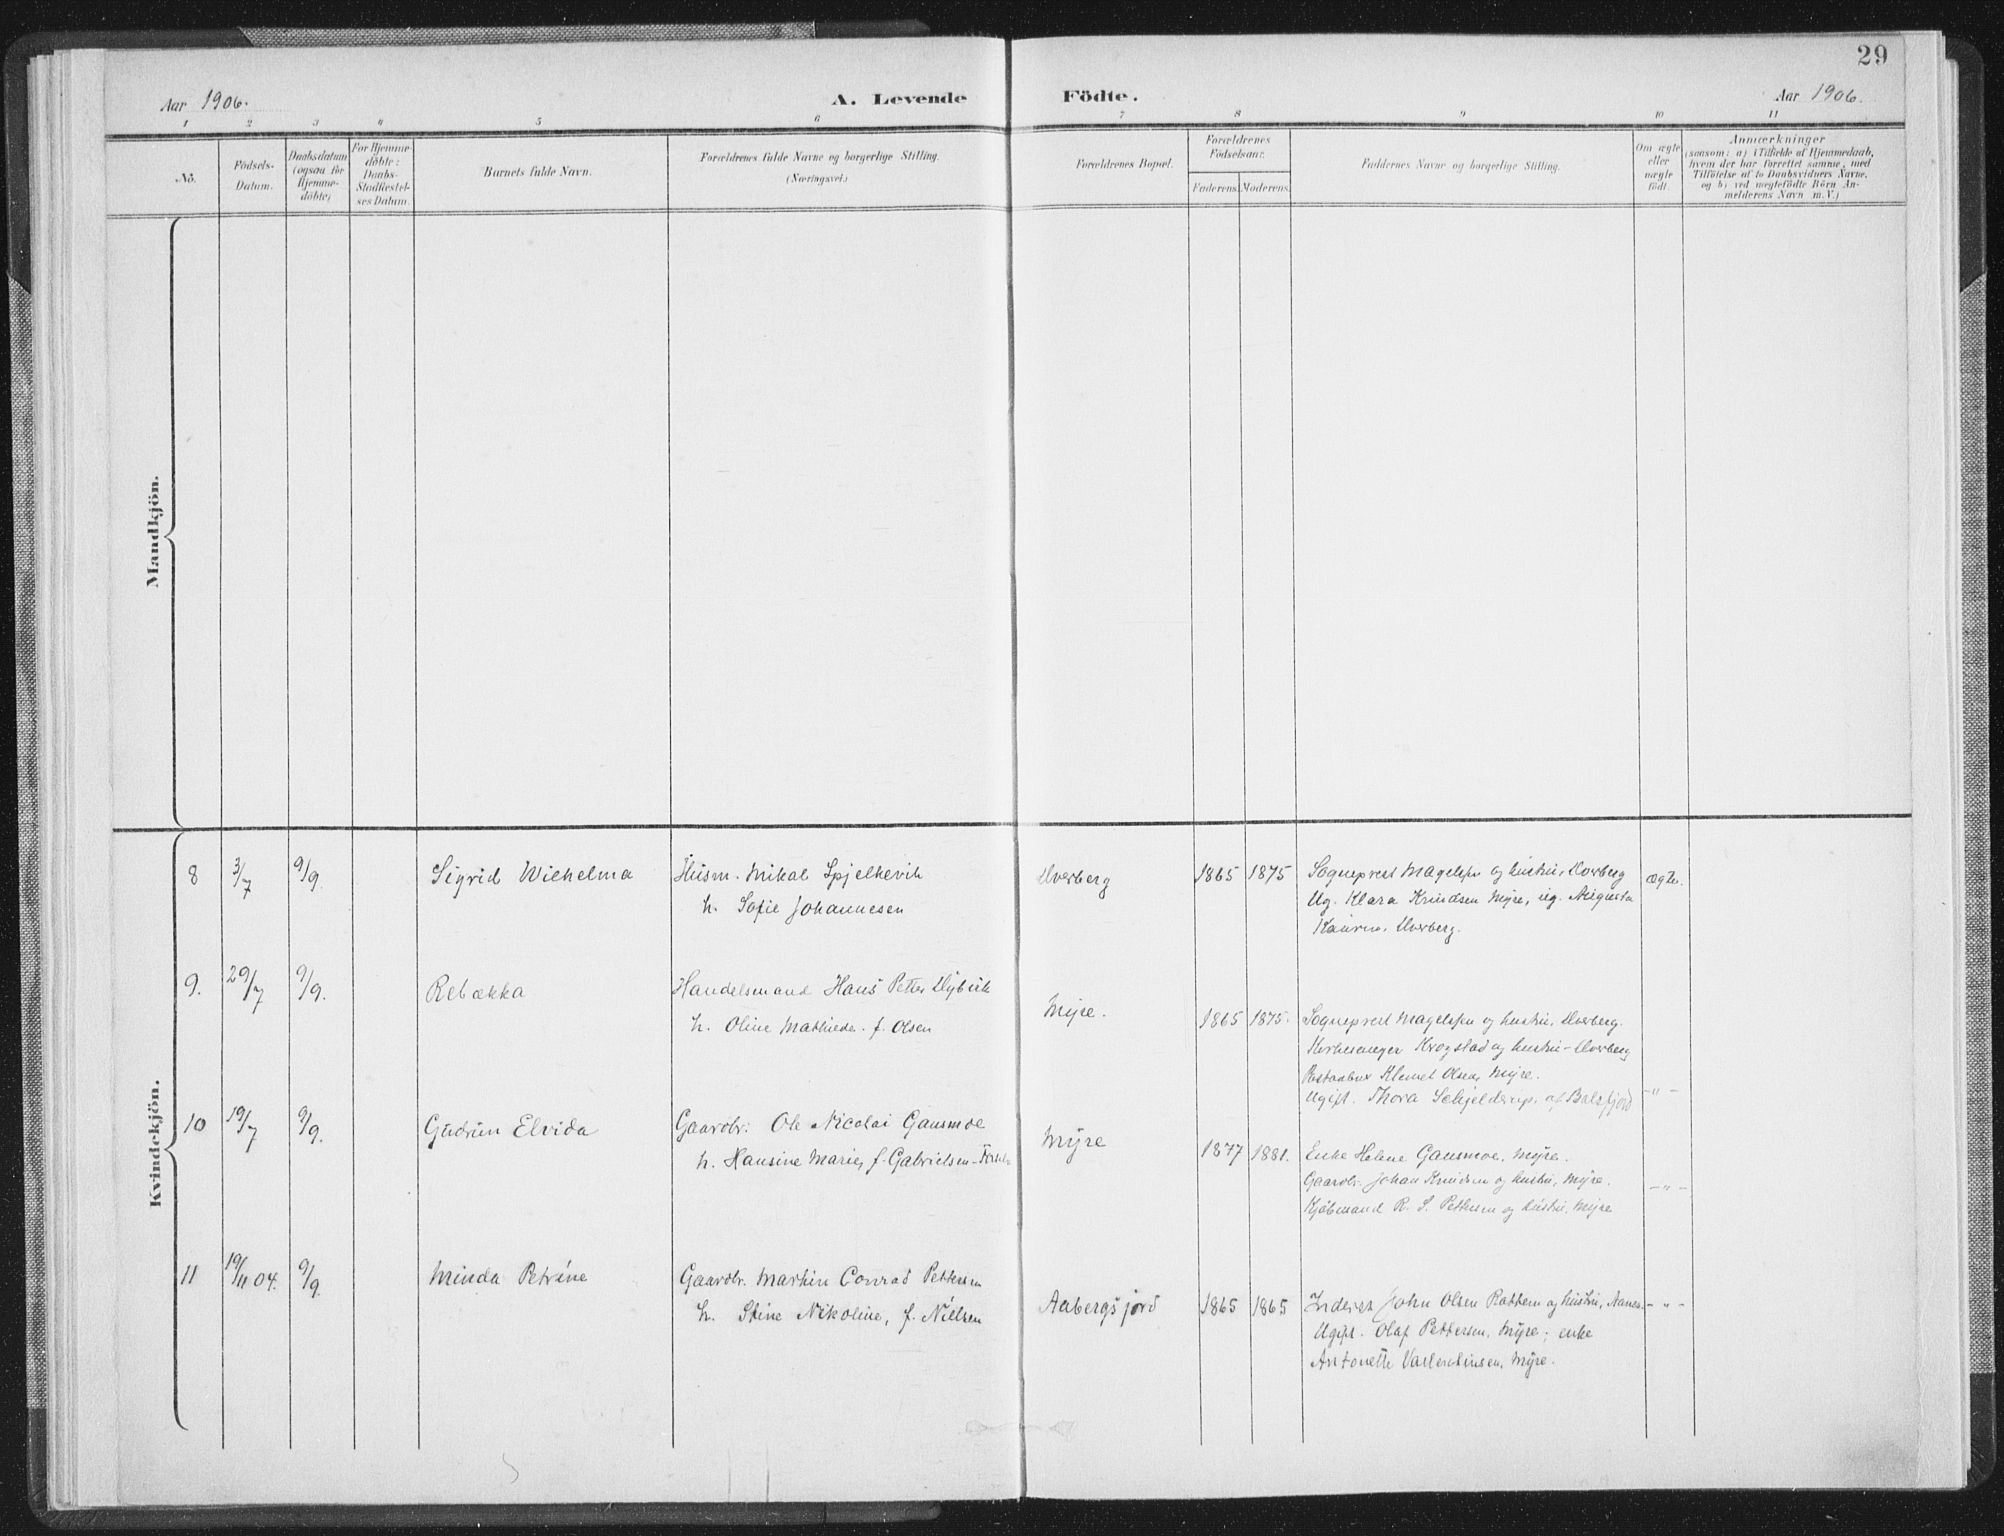 29
Aar 1906.
A. Levende
Födte.
Aar 1906.
1 2 3 4 5 6 7 8 9 10 11
No.
Födsels-
Datum.
Daabsdatum
(ogsaa for
Hjemme-
döbte)
For Hjemme-
döbte:
Daabs-
Stadfæstel-
ses Datum.
Barnets fulde Navn.
Forældrenes fulde Navne og borgerlige Stilling.
(Næringsvei.)
Forældrenes Bopæl.
Forældrenes
Födselsaar.
Faderens.
Moderens.
Faddernes Navne og borgerlige Stilling.
Om ægte
eller
uægte
födt.
Anmærkninger
(saasom: a) i Tilfælde af Hjemmedaab,
hvem der har forrettet samme, med
Tilföielse af to Daabsvidners Navne,
og b) ved uegtefödte Börn An-
melderens Navn m.V.)
Mandkjön.
Kvindekjön.
8 3/7 9/9. Sigrid Wilhelma Husm. Mikal Spjelkevik Dverberg 1865 1875 Sogneprest Magelssen og hustru, Dverberg ægte.
h. Sofie Johannesen Ug. Klara Knudsen Myre, ug. Augusta
Kaurin, Dverberg.
9. 29/7 9/9. Rebækka Handelsmand Hans Petter Dybvik Myre. 1865 1875. Sogneprest Magelssen og hustru, Dverberg.
h. Oline Mathilde f. Olsen Kirkesanger Krogstad og hustru - Dverberg
Klemet Olsen, Myre.
Ugift. Thora Schjelderup, af Balsfjord -"-
10 19/7 9/9. Gudrun Elvida Gaardbr. Ole Nicolai Gausmoe Myre 1877 1881. Enke Helene Gausmoe, Myre.
h. Hansine Marie, f. Gabrielsen Gaardbr. Johan Knudsen og hustru, Myre. -"-
Kjöbmand R. S. Pettersen og hustru, Myre
11 19/11 04. 9/9. Minda Petrine Gaardbr. Martin Conrad Pettersen Aabergsjord 1865 1865 Inderst John Olsen og hustru, -"-
h. Stine Nikoline, f. Nielsen Ugift. Olaf Pettersen, Myre; enke
Antonette Valentinsen, Myre.